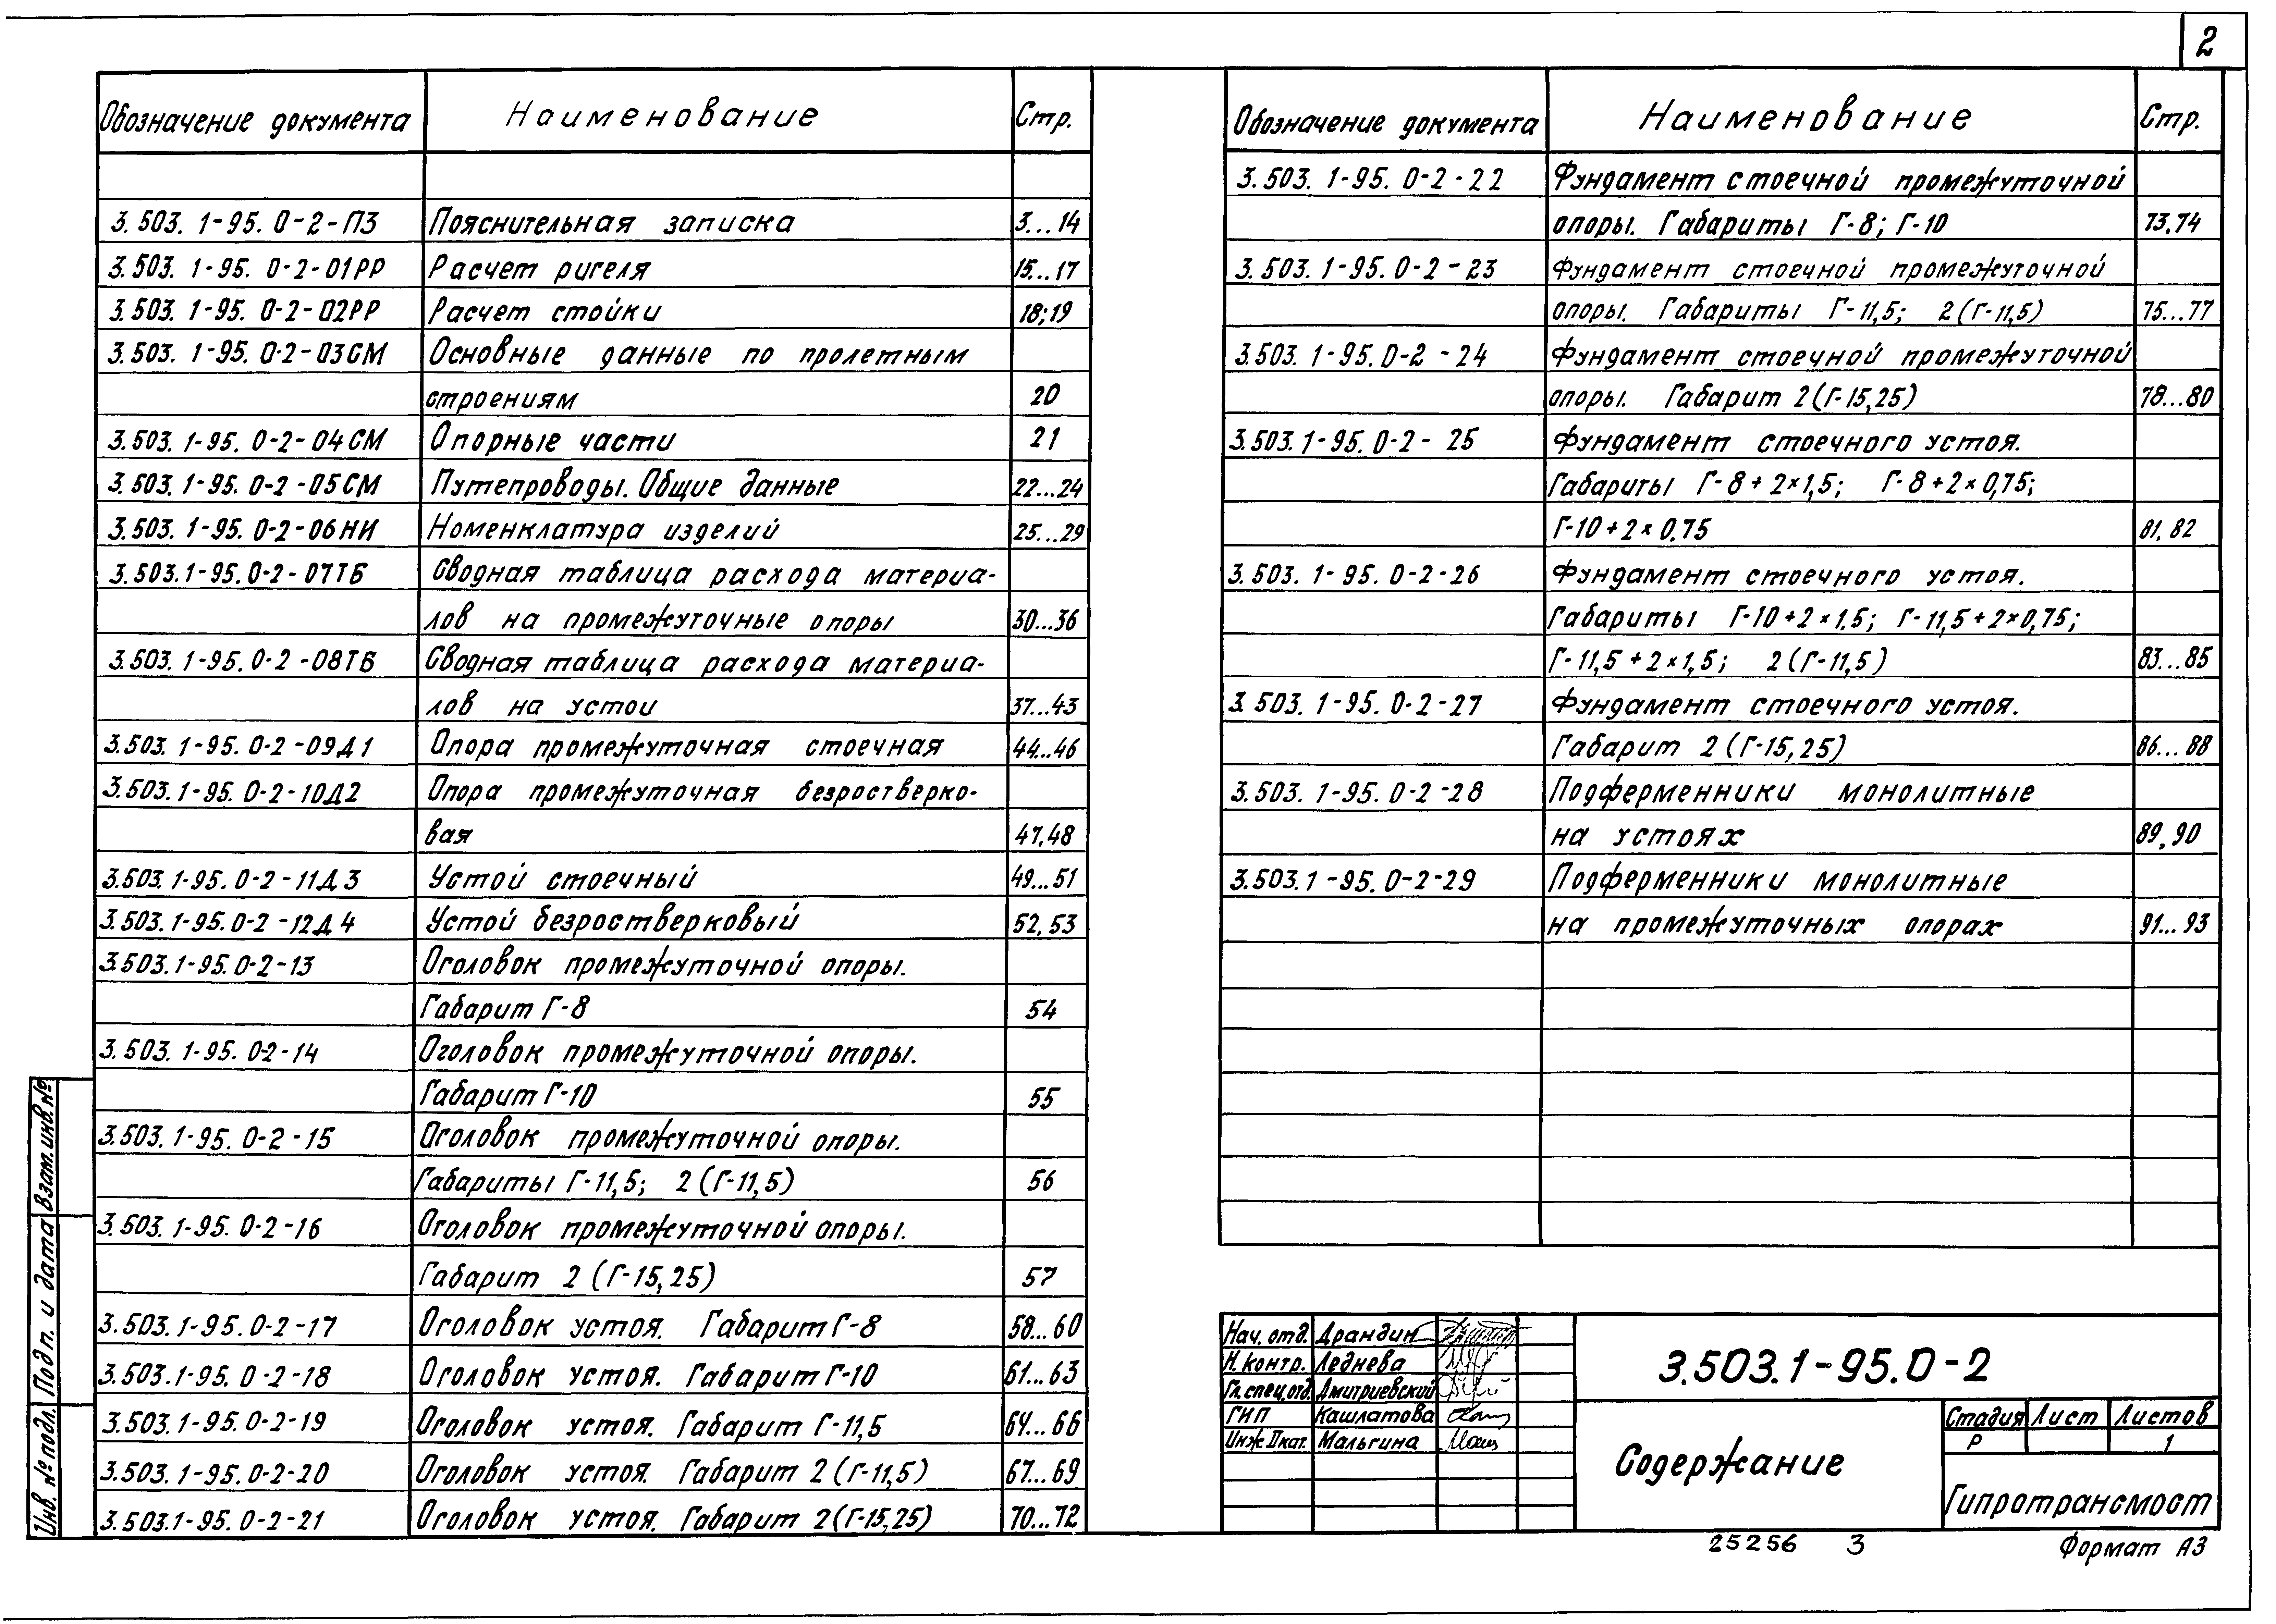 2
Обозначение документа Наименование Стр.
3.503.1-95.0-2-ПЗ Пояснительная записка 3...14
3.503.1-95.0-2-01РР Расчет ригеля 15...17
3.503.1-95.0-2-02РР Расчет стойки 18;19
3.503.1-95.0-2-03СМ Основные данные по пролетным
строениям 20
3.503.1-95.0-2-04СМ Опорные части 21
3.503.1-95.0-2-05СМ Путепроводы. Общие данные 22...24
3.503.1-95.0-2-06НИ Номенклатура изделий 25...29
3.503.1-95.0-2-07ТБ Сводная таблица расхода материа-
лов на промежуточные опоры 30...36
3.503.1-95.0-2-08ТБ Сводная таблица расхода материа-
лов на устои 37...43
3.503.1-95.0-2-09Д1 Опора промежуточная стоечная 44...46
3.503.1-95.0-2-10Д2 Опора промежуточная безростверко-
вая 47,48
3.503.1-95.0-2-11Д3 Устой стоечный 49...51
3.503.1-95.0-2-12Д4 Устой безростверковый 52,53
3.503.1-95.0-2-13 Оголовок промежуточной опоры.
Габарит Г-8 54
3.503.1-95.0-2-14 Оголовок промежуточной опоры.
Габарит Г-10 55
3.503.1-95.0-2-15 Оголовок промежуточной опоры.
Габариты Г-11,5; 2(Г-11,5) 56
3.503.1-95.0-2-16 Оголовок промежуточной опоры.
Габарит 2(Г-15,25) 57
3.503.1-95.0-2-17 Оголовок устоя. Габарит Г-8 58...60
3.503.1-95.0-2-18 Оголовок устоя. Габарит Г-10 61...63
3.503.1-95.0-2-19 Оголовок устоя. Габарит Г-11,5 64...66
3.503.1-95.0-2-20 Оголовок устоя. Габарит 2(Г-11,5) 67...69
3.503.1-95.0-2-21 Оголовок устоя. Габарит 2(Г-15,25) 70...72
Обозначение документа Наименование Стр.
3.503.1-95.0-2-22 Фундамент стоечной промежуточной
опоры. Габариты Г-8; Г-10 73,74
3.503.1-95.0-2-23 Фундамент стоечной промежуточной
опоры. Габариты Г-11,5; 2(Г-11,5) 75...77
3.503.1-95.0-2-24 Фундамент стоечной промежуточной
опоры. Габарит 2(Г-15,25) 78...80
3.503.1-95.0-2-25 Фундамент стоечного устоя.
Габариты Г-8+2×1,5; Г-8+2×0,75;
Г-10+2×0,75 81,82
3.503.1-95.0-2-26 Фундамент стоечного устоя.
Габариты Г-10+2×1,5; Г-11,5+2×0,75;
Г-11,5+2×1,5; 2(Г-11,5) 83...85
3.503.1-95.0-2-27 Фундамент стоечного устоя.
Габарит 2(Г-15,25) 86...88
3.503.1-95.0-2-28 Подферменники монолитные
на устоях 89,90
3.503.1-95.0-2-29 Подферменники монолитные
на промежуточных опорах 91...93
Взам.инв.№
Подп. и дата
Инв. № подл.
Нач. отд. Драндин
Н. контр. Леднева
Гл. спец. отд. Дмитриевский
ГИП Кашлатова
Инж. II кат. Мальгина
3.503.1-95.0-2
Содержание
Стадия Лист Листов
Р 1
Гипротрансмост
25256 3
Формат А3